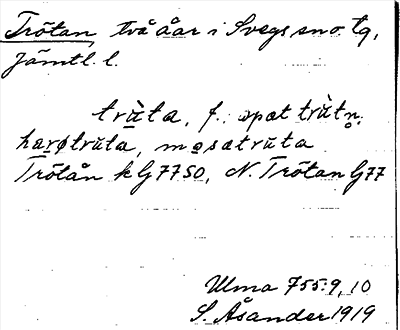 Trötan, två åar i Svegs sno. tg,
Jämtl. l.
trùta, f. opat trùtn̥.
harøtrùta, mosatruta
Trötån k G 7750, N. Trötan G 77
Ulma 755:9, 10
S. Åsander 1919